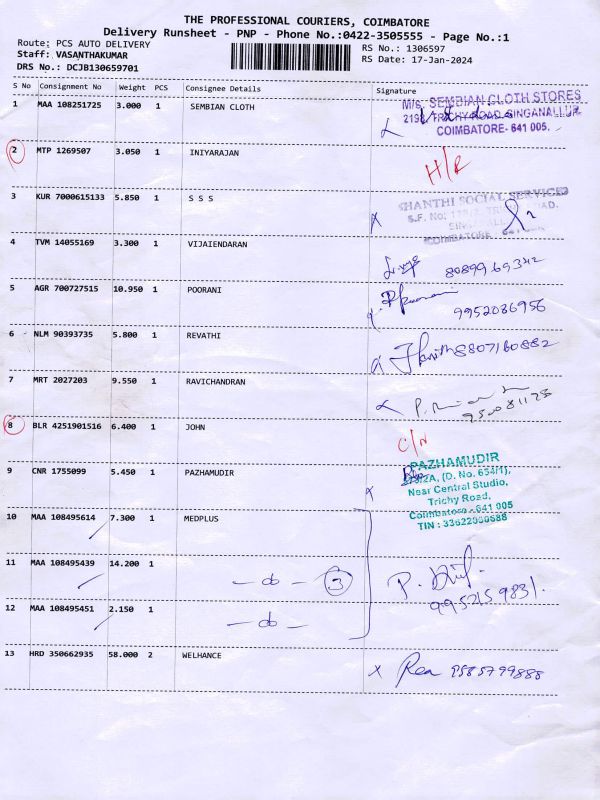 THE PROFESSIONAL COURIERS, COIMBATORE
Delivery Runsheet - PNP - Phone No.:0422-3505555 - Page No.:1
Route: PCS AUTO DELIVERY
Staff: VASANTHAKUMAR
DRS No.: DCJB130659701
RS No.: 1306597
RS Date: 17-Jan-2024
S No Consignment No Weight PCS Consignee Details Signature
1 MAA 108251725 3.000 1 SEMBIAN CLOTH
M/s. SEMBIAN CLOTH STORES
TRICHY ROAD, SINGANALLUR
COIMBATORE- 641 005.
2 MTP 1269507 3.050 1 INIYARAJAN H/R
3 KUR 7000615133 5.850 1 S S S
SHANTHI SOCIAL SERVICES
S.F. No:
COIMBATORE
4 TVM 14055169 3.300 1 VIJAIENDARAN
8089969342
5 AGR 700727515 10.950 1 POORANI
9952036956
6 NLM 90393735 5.800 1 REVATHI
8807160882
7 MRT 2027203 9.550 1 RAVICHANDRAN
8 BLR 4251901516 6.400 1 JOHN C/N
9 CNR 1755099 5.450 1 PAZHAMUDIR
PAZHAMUDIR
(D. No. 654/1),
Near Central Studio,
Trichy Road,
Coimbatore - 641 005
TIN : 33622060688
10 MAA 108495614 7.300 1 MEDPLUS
11 MAA 108495439 14.200 1 -do- 3
P.
9952159831.
12 MAA 108495451 2.150 1 -do-
13 HRD 350662935 58.000 2 WELHANCE
9585799888